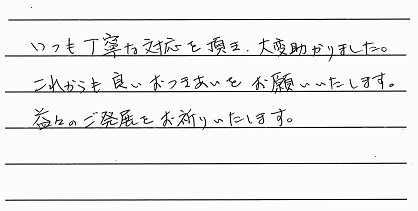 いつも丁寧な対応を頂き、大変助かりました。
これからも良いおつきあいをお願いいたします。
益々のご発展をお祈りいたします。